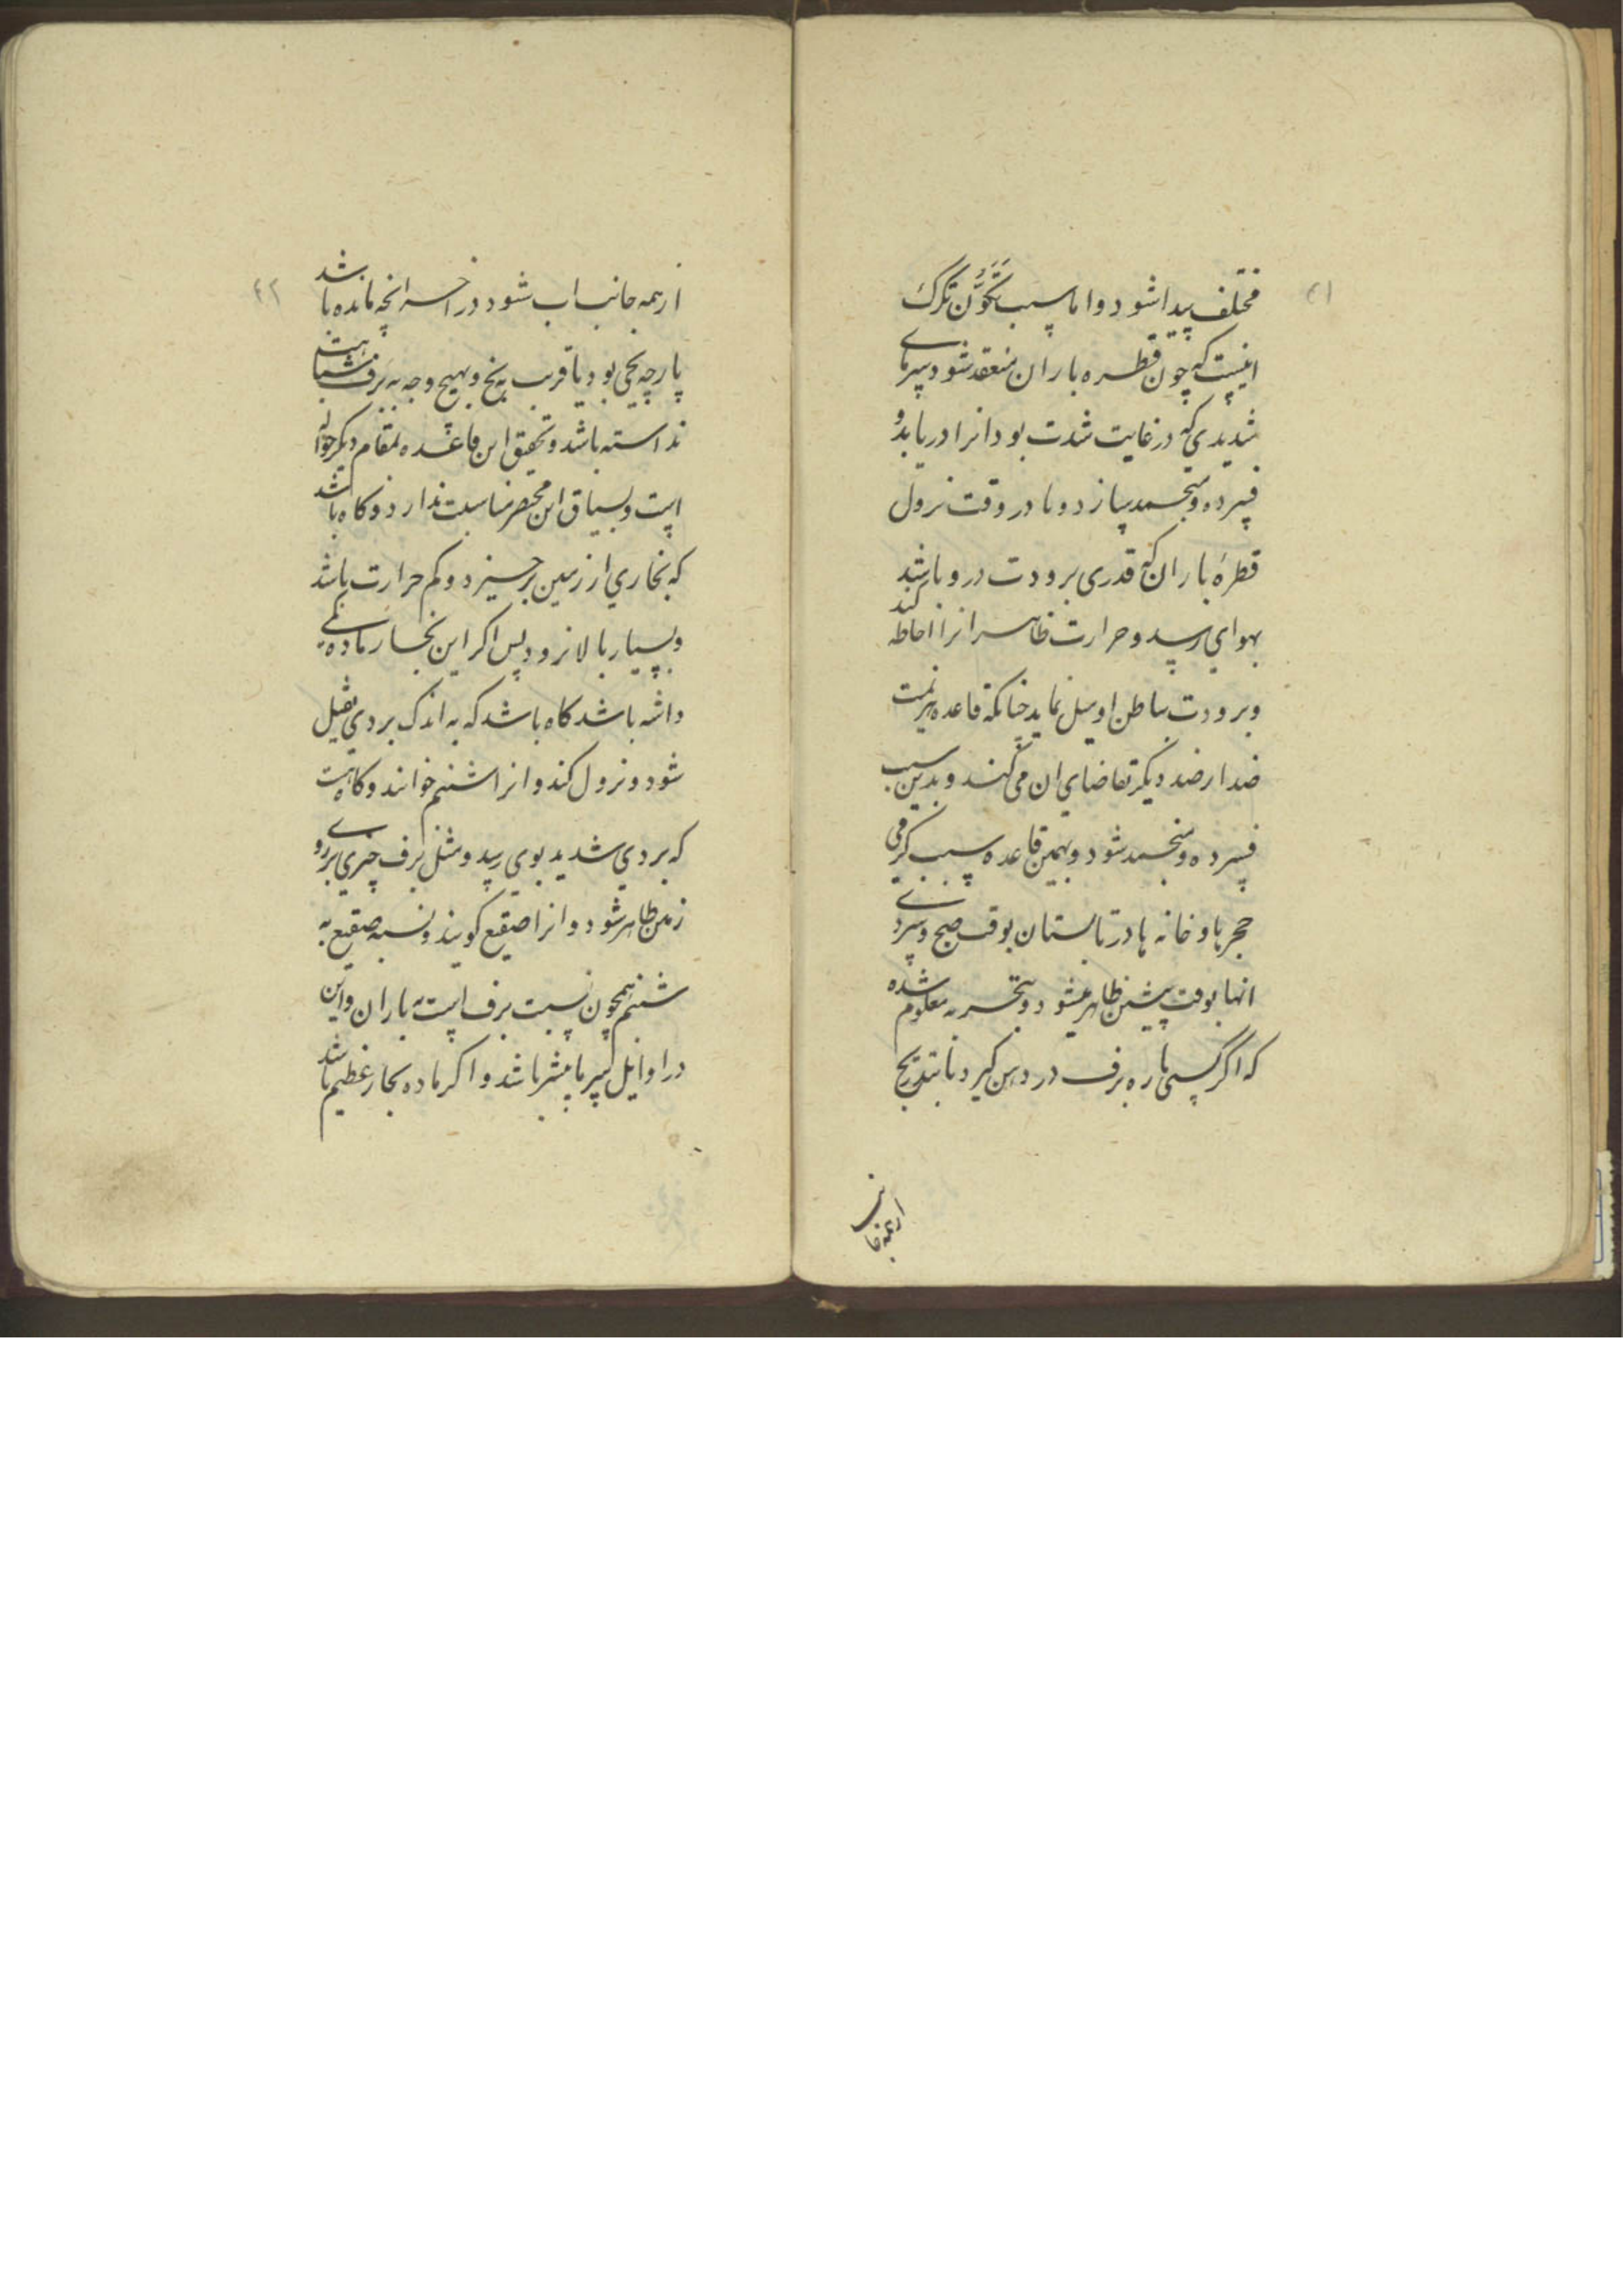 ۴۱
مختلف پیدا شود و اما سبب تَکَوُّن تگرک
اینست که چون قطره باران منعقد شود سرمای
شدیدی که در غایت شدت بود انرا دریابد و
فسرده و منجمد سازد و یا در وقت نزول
قطرهٔ باران که قدری برودت درو باشد
بهوای رسد و حرارت ظاهر انرا احاطه کند
و برودت بباطن او میل نماید چنانکه قاعده هزیمت
ضد از ضد دیگر تقاضای ان می کند و بدین سبب
فسرده و منجمد شود و بهمین قاعده سبب گرمی
حجرها و خانه ها در تابستان بوقت صبح و سردی
انها بوقت پیشین ظاهر میشود و بتجربه معلوم شده
که اگر کسی پاره برف در دهن کیرد تا بتدریج
از همه جانب
۴۲
از همه جانب اب شود در اخر انچه مانده باشد
پارچه یخی بود یا قریب به یخ و بهیچ وجه به برف مشابهت
نداسته باشد و تحقیق این قاعده بمقام دیکر حواله
است و بسیاق این مختصر مناسبت ندارد و کاه باشد
که بخاری از زمین برخیزد و کم حرارت باشد
و بسیار بالا نرود پس اکر این بخار ماده کمی
داشه باشد کاه باشد که به اندک بردی ثقیل
شود و نزول کند و انرا شبنم خوانند و کاه هست
که بردی شدید بوی رسد و مثل برف چیزی بر روی
زمین ظاهر شود و انرا صقیع کویند و نسبه صقیع به
شبنم همچون نسبت برف است به باران و این
در اوایل سرما بیشتر باشد و اکر ماده بخار عظیم باشد